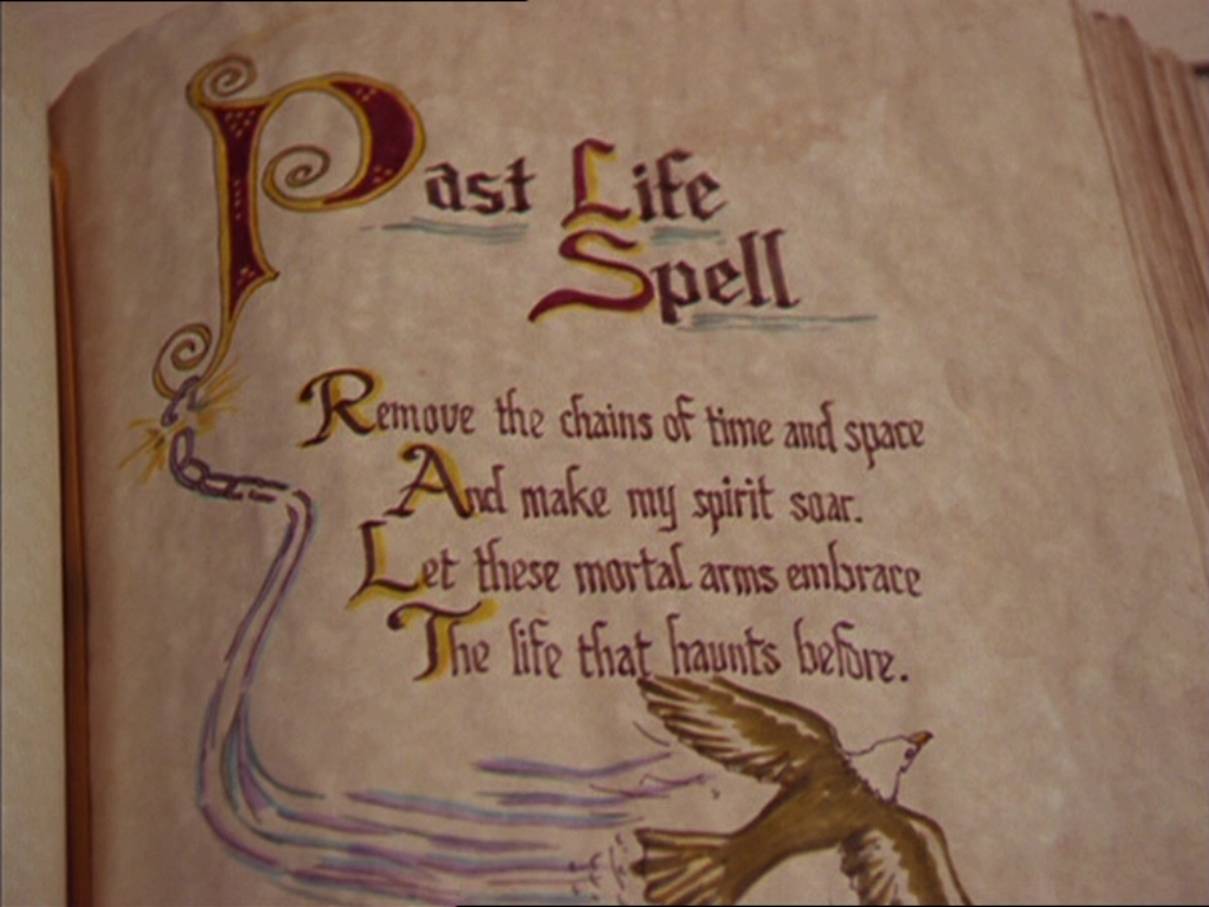 Past Life
Spell
Remove the chains of time and space
And make my spirit soar.
Let these mortal arms embrace
The life that haunts before.